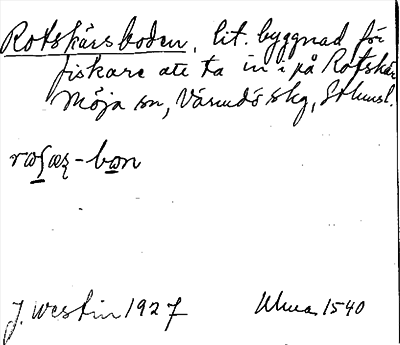 Rotskärsboden, lit. byggnad för
fiskare att ta in i på Rotskär
Möja sn, Värmdö skg, Sthmsl.
J. Westin 1927 Uhua 1540